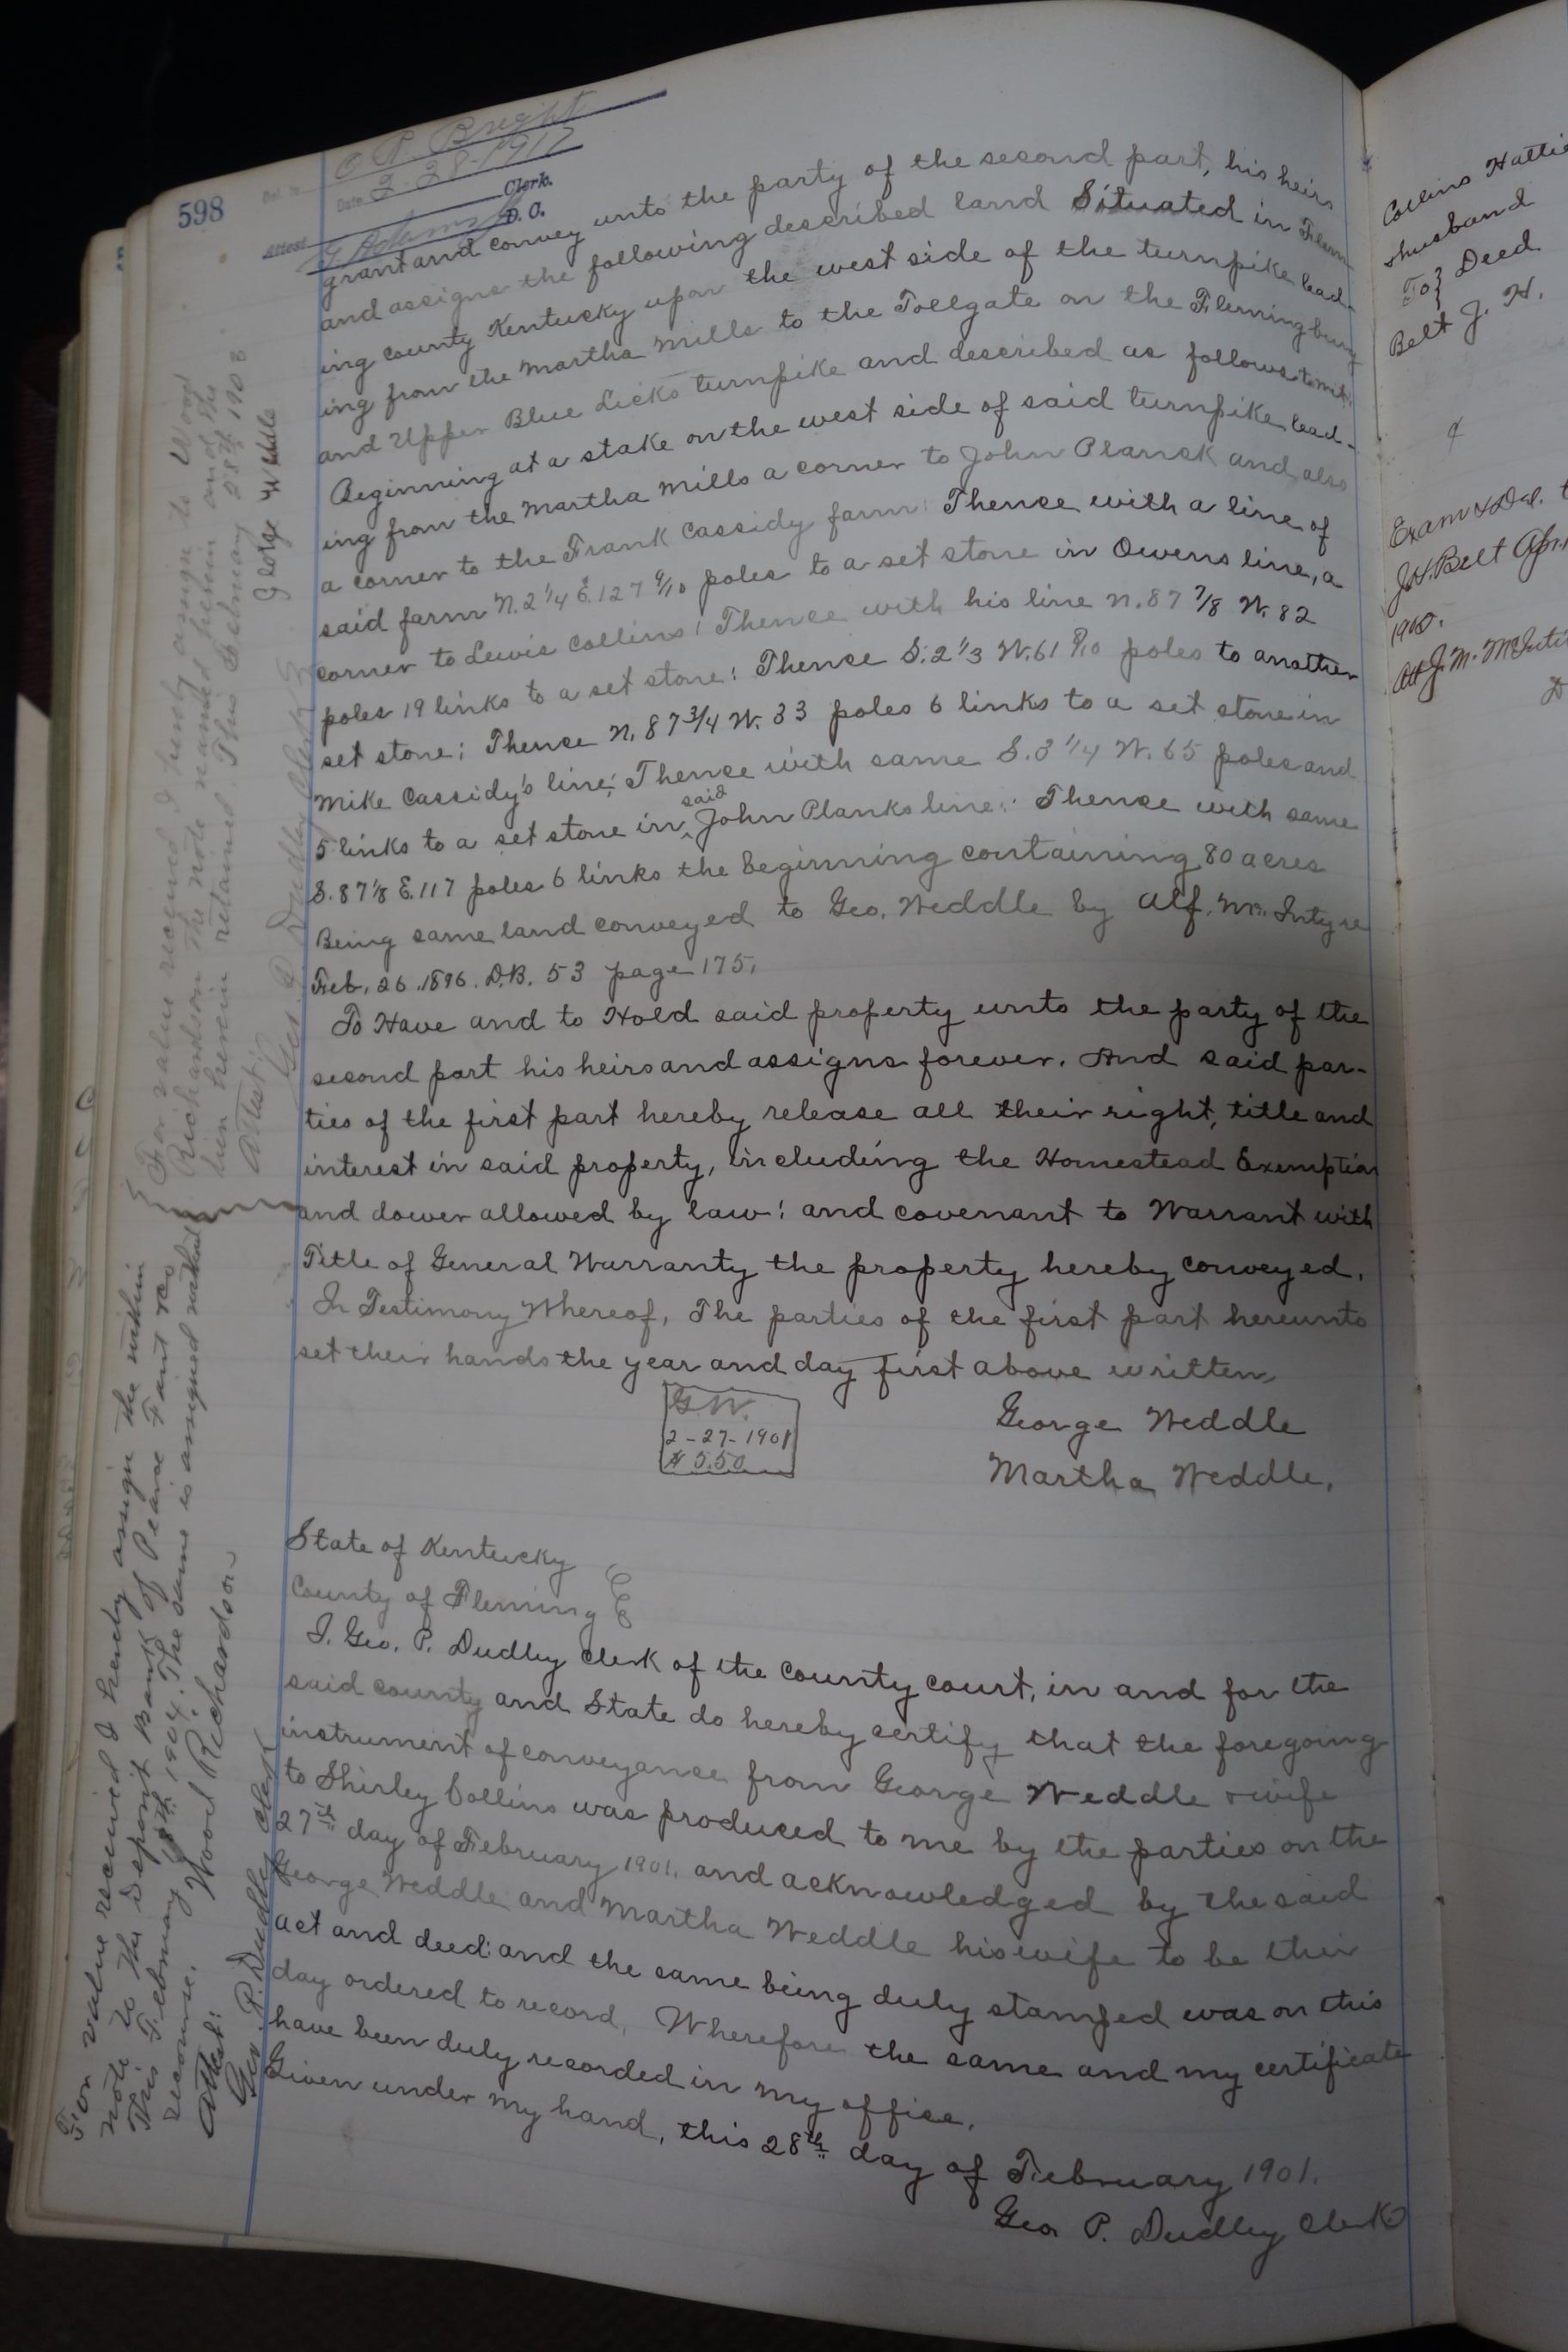 598
Del. to O P. Bright
Date 2-28-1917
Clerk.
Attest D. C.
grant and convey unto the party of the second part, his heirs
and assigns the following described land Situated in Flem
ing County Kentucky upon the west side of the turnpike lead-
ing from the Martha Mills to the Tollgate on the Flemingburg
and Upper Blue Licks turnpike and described as follows towit:
Beginning at a stake on the west side of said turnpike lead-
ing from the Martha Mills a corner to John Planck and also
a corner to the Frank Cassidy farm: Thence with a line of
said farm N. 2 1/4 E. 127 9/10 poles to a set stone in Owens line, a
corner to Lewis Collins: Thence with his line N. 87 7/8 W. 82
poles 19 links to a set stone: Thence S. 2 1/3 W. 61 8/10 poles to another
set stone; Thence N. 87 3/4 W. 33 poles 6 links to a set stone in
Mike Cassidy's line; Thence with same S. 3 1/4 W. 65 poles and
5 links to a set stone in said John Planks line: Thence with same
S. 87 1/8 E. 117 poles 6 links the beginning containing 80 acres
Being same land conveyed to Geo. Weddle by Alf. Mc. Intyre
Feb. 26. 1896. D.B. 53 page 175.
To Have and to Hold said property unto the party of the
second part his heirs and assigns forever. And said par-
ties of the first part hereby release all their right, title and
interest in said property, including the Homestead Exemption
and dower allowed by law: and covenant to Warrant with
Title of General Warranty the property hereby conveyed.
In Testimony Whereof, The parties of the first part hereunto
set their hands the year and day first above written,
G.W.
2-27-1901
$ 5.50
George Weddle
Martha Weddle.
State of Kentucky
County of Fleming
I. Geo. P. Dudley Clerk of the County Court, in and for the
said county and State do hereby certify that the foregoing
instrument of conveyance from George Weddle & wife
to Shirley Collins was produced to me by the parties on the
27th day of February 1901. and acknowledged by the said
George Weddle and Martha Weddle his wife to be their
act and deed: and the same being duly stamped was on this
day ordered to record. Wherefore the same and my certificate
have been duly recorded in my office.
Given under my hand, this 28th day of February 1901.
Geo P. Dudley Clerk
For value received I hereby assign to Wood
Richardson the note named herein and the
lien herein retained. This February 28th 1903
George Weddle
Attest:
Geo. P. Dudley Clerk
For value received I hereby assign the within
note to the Deposit Bank of Pearce Fant &co
This February 18th 1904. The same is assigned without
recourse. Wood Richardson
Attest:
Geo P. Dudley Clerk
Collins Hattie
& husband
To } Deed
Belt J. H.
Exam & Del. t
J.H. Belt Apr.
1905.
Att J. M. McInti
D